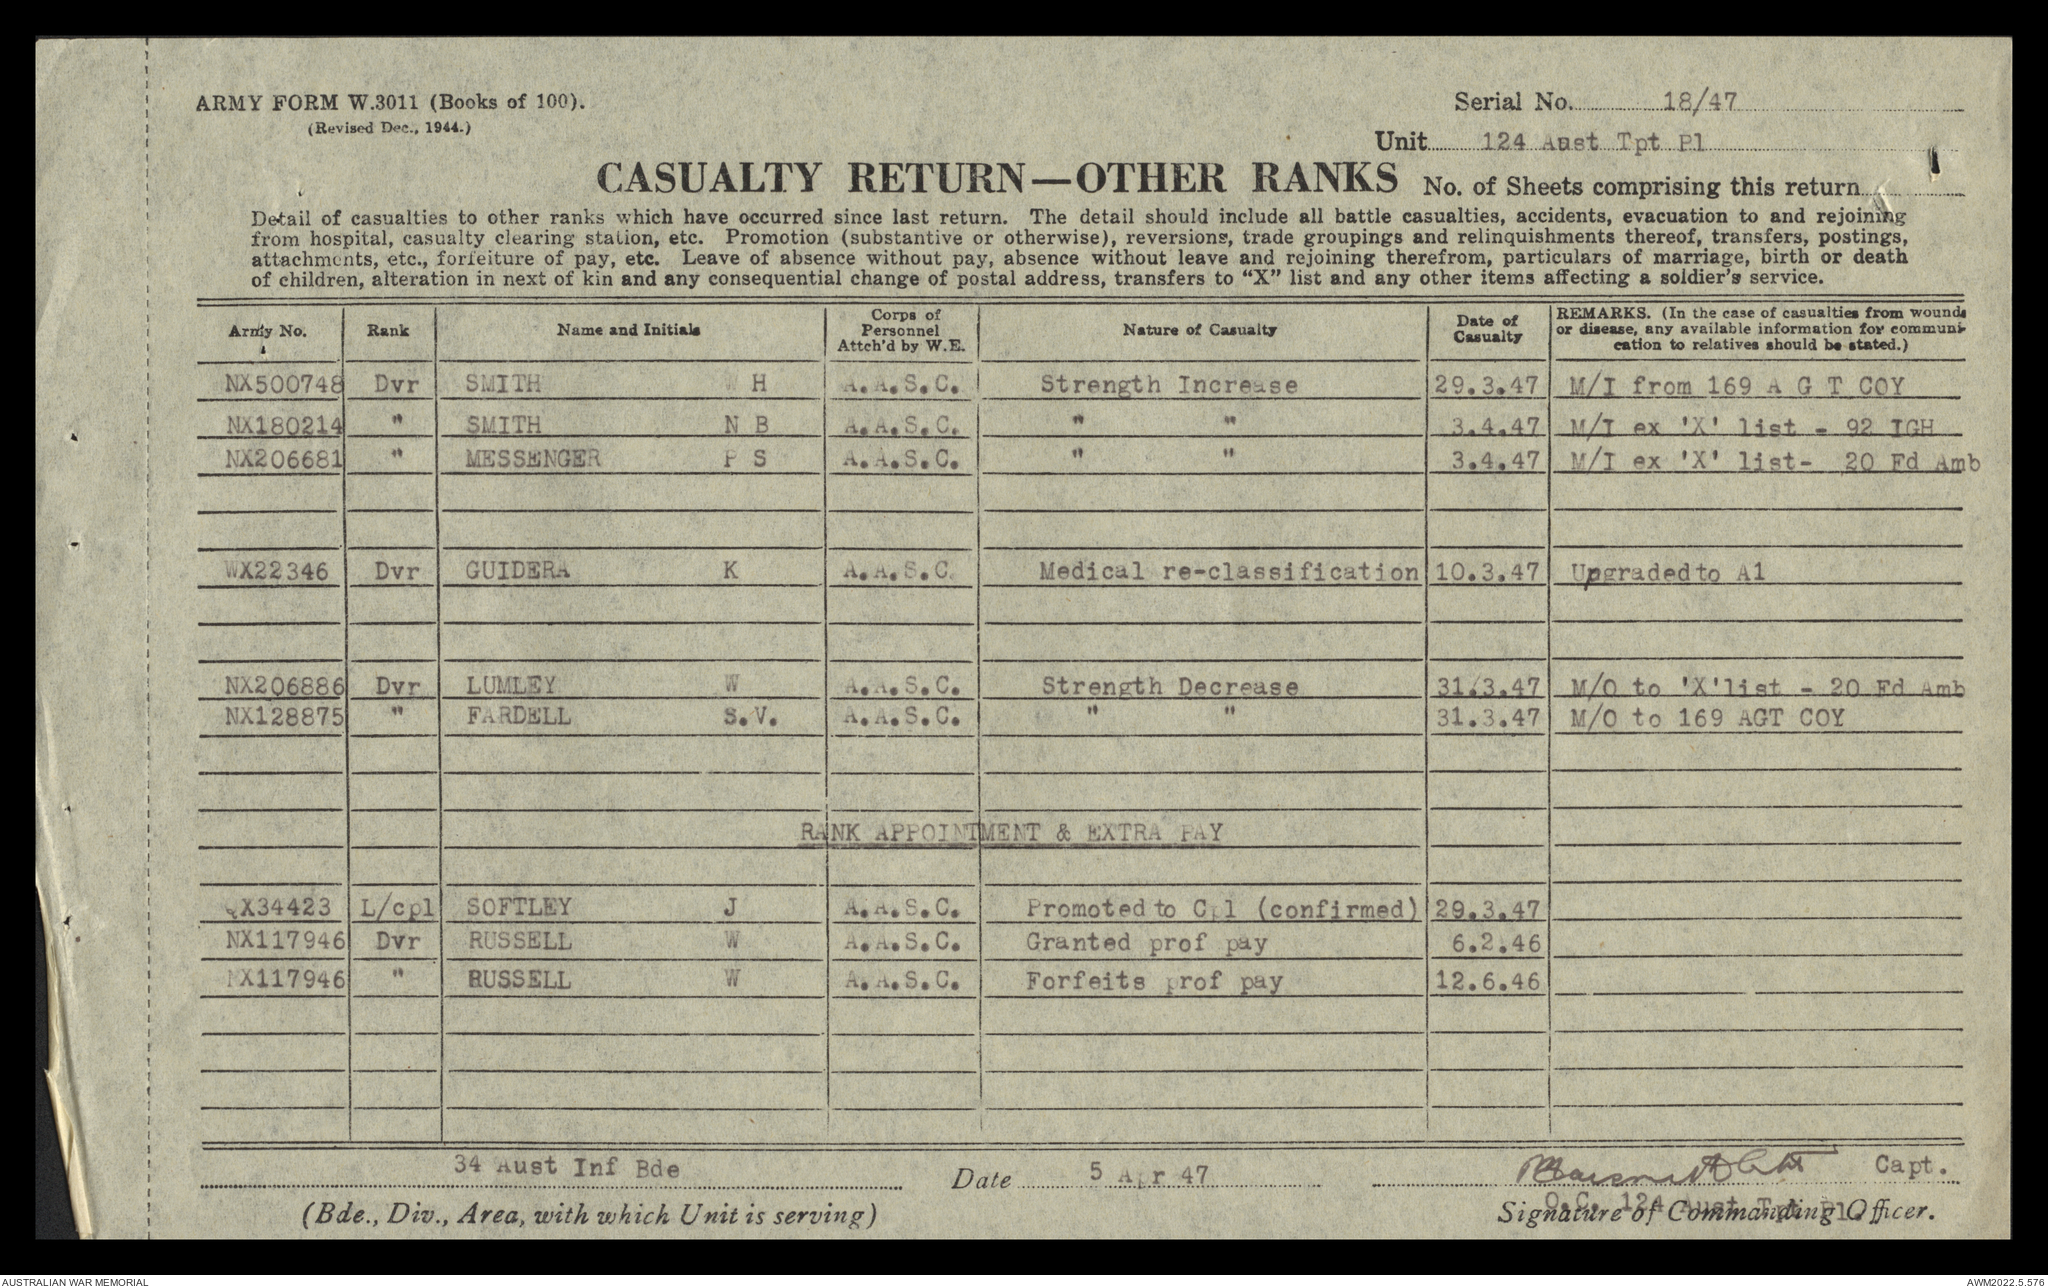 ARMY FORM W.3011 (Books of 100).
(Revised Dec., 1944.)
Serial No. 18/47
Unit 124 Aust Tpt Pl
CASUALTY RETURN—OTHER RANKS
No. of Sheets comprising this return
Detail of casualties to other ranks which have occurred since last return. The detail should include all battle casualties, accidents, evacuation to and rejoining
from hospital, casualty clearing station, etc. Promotion (substantive or otherwise), reversions, trade groupings and relinquishments thereof, transfers, postings,
attachments, etc., forfeiture of pay, etc. Leave of absence without pay, absence without leave and rejoining therefrom, particulars of marriage, birth or death
of children, alteration in next of kin and any consequential change of postal address, transfers to "X" list and any other items affecting a soldier's service.
Army No. Rank Name and Initials Corps of Personnel Attch'd by W.E. Nature of Casualty Date of Casualty REMARKS. (In the case of casualties from wounds or disease, any available information for communi-cation to relatives should be stated.)
NX500748 Dvr SMITH W H A.A.S.C. Strength Increase 29.3.47 M/I from 169 A G T COY
NX180214 " SMITH N B A.A.S.C. " " 3.4.47 M/I ex 'X' list - 92 IGH
NX206681 " MESSENGER P S A.A.S.C. " " 3.4.47 M/I ex 'X' list- 20 Fd Amb
WX22346 Dvr GUIDERA K A.A.S.C. Medical re-classification 10.3.47 Upgraded to A1
NX206886 Dvr LUMLEY W A.A.S.C. Strength Decrease 31.3.47 M/O to 'X'list - 20 Fd Amb
NX128875 " FARDELL S.V. A.A.S.C. " " 31.3.47 M/O to 169 AGT COY
RANK APPOINTMENT & EXTRA PAY
QX34423 L/cpl SOFTLEY J A.A.S.C. Promoted to Cpl (confirmed) 29.3.47
NX117946 Dvr RUSSELL W A.A.S.C. Granted prof pay 6.2.46
NX117946 " RUSSELL W A.A.S.C. Forfeits prof pay 12.6.46
34 Aust Inf Bde
Date 5 Apr 47
Capt.
O.C. 124 Aust Tpt Pl.
(Bde., Div., Area, with which Unit is serving)
Signature of Commanding Officer.
AUSTRALIAN WAR MEMORIAL
AWM2022.5.576